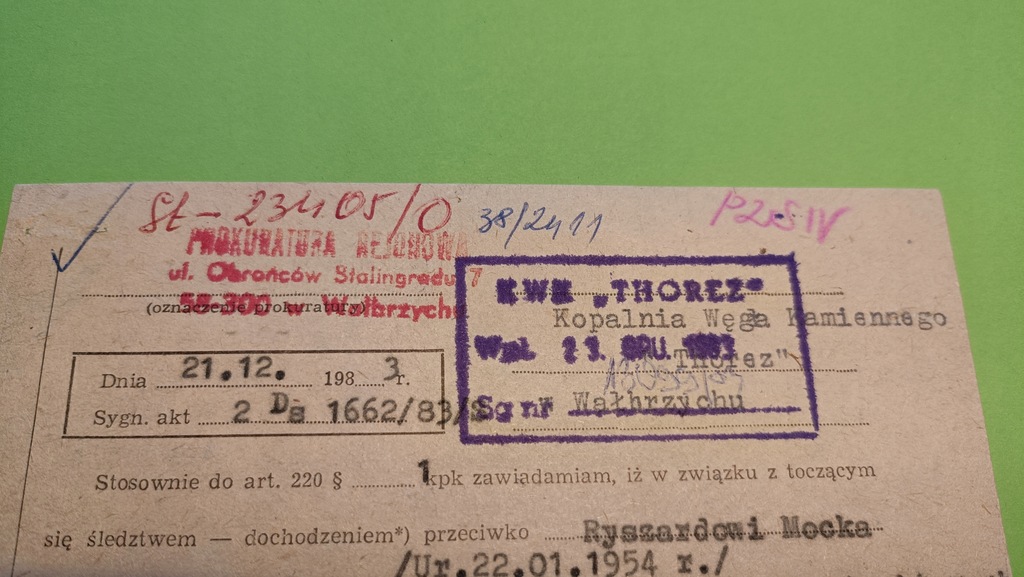 St-23405/0 38/2411
PROKURATURA REJONOWA
ul. Obrońców Stalingradu 7
58-300 Wałbrzych
(oznaczenie prokuratury)
KWK „THOREZ"
Kopalnia Węgla Kamiennego
Wpł. GRU. 1983
Thorez"
Sg nr Wałbrzychu
Dnia 21.12. 1983 r.
Sygn. akt 2 Ds 1662/83/
Stosownie do art. 220 § 1 kpk zawiadamiam, iż w związku z toczącym
się śledztwem — dochodzeniem*) przeciwko Ryszardowi Mocka
/Ur.22.01.1954 r./